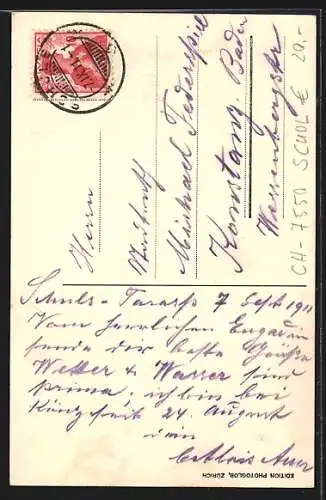 Herrn
Stadtrath
Michael Federspiel
Konstanz, Baden
Wessenbergstr
CH-7550 SCUOL € 20,-
Schuls-Tarasp 7 Sept 1911
Vom herrlichen Engadin
sende dir beste Grüße
Wetter & Wasser sind
prima, ich bin bei
Künz seit 24. August
dein
EDITION PHOTOGLOB, ZÜRICH